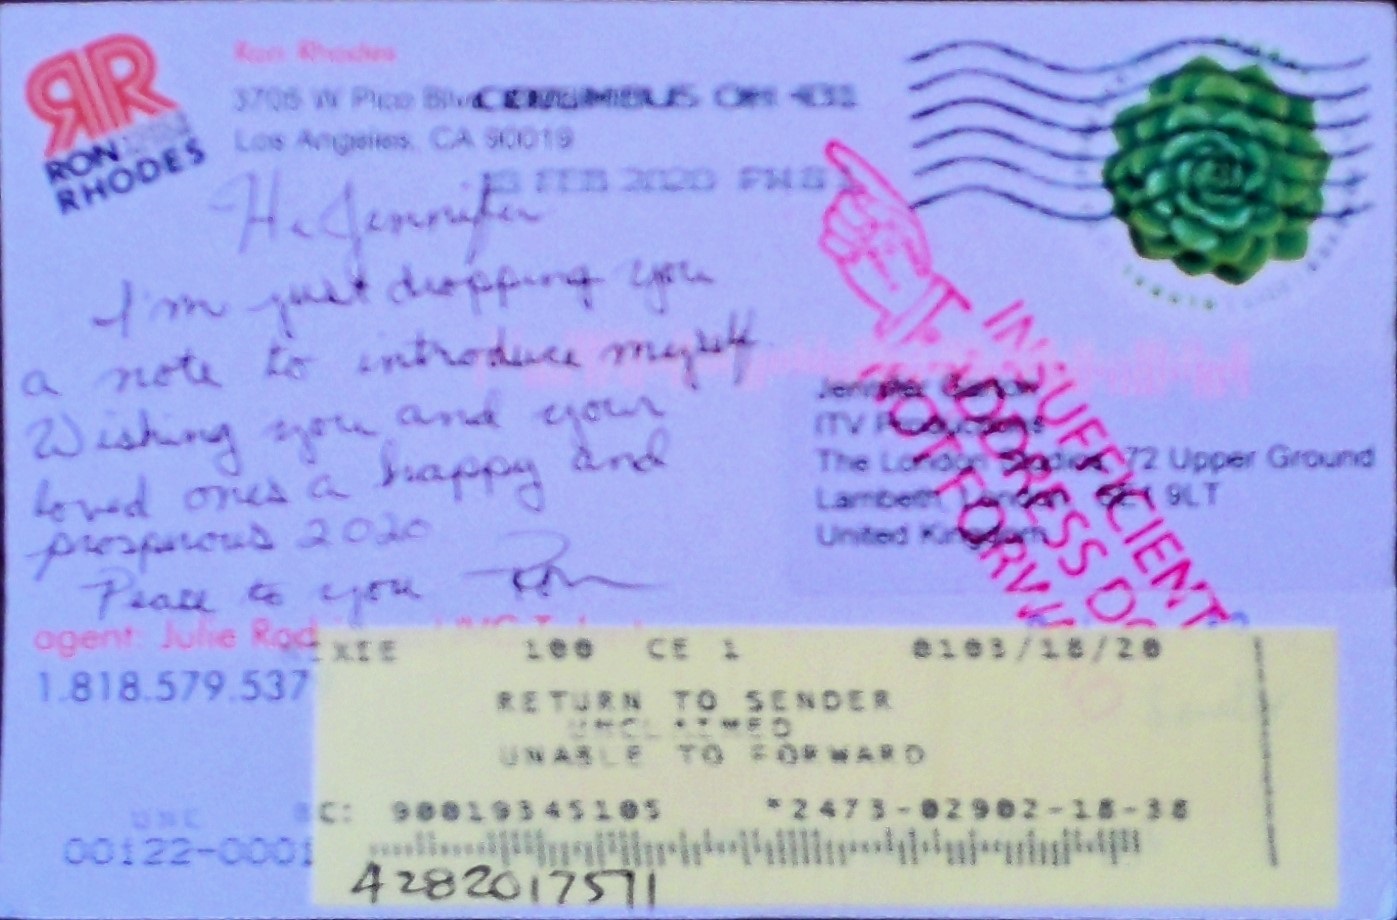 RR
RON
RHODES
Ron Rhodes
3706 W Pico Blvd
COLUMBUS OH 431
Los Angeles, CA 90019
FEB 2020 PM 8
Hi Jennifer
I'm just dropping you
a note to introduce myself
Wishing you and your
loved ones a happy and
prosperous 2020
Peace to you Ron
INSUFFICIENT
ADDRESS
NOT FORW
Jennifer
ITV Productions
The London Studios, 72 Upper Ground
Lambeth, London, SE1 9LT
United Kingdom
agent: Julie
1.818.579.537
XIE 100 CE 1 0103/18/20
RETURN TO SENDER
UNCLAIMED
UNABLE TO FORWARD
UNC
BC: 90019345105 *2473-02902-18-38
00122-0001
4282017571